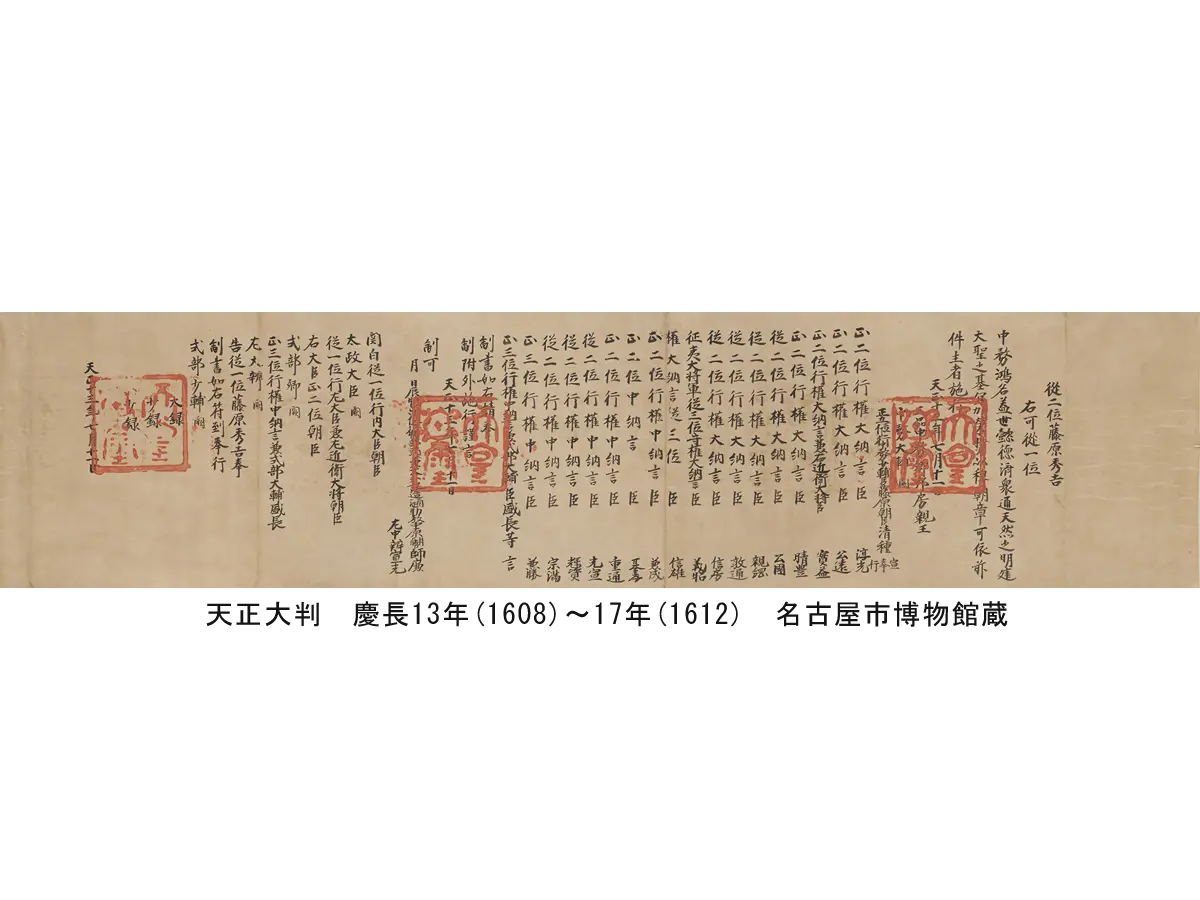 從二位藤原秀吉
右可從一位
中務鴻名蓋世懿德濟衆通天然之明建
大聖之基
朝章可依前
件主者施行
正二位行權大納言臣 淳光
正二位行權大納言臣 公遠
正二位行權大納言兼右近衛大將臣
正二位行權大納言臣 晴豊
從二位行權大納言臣 公國
從二位行權大納言臣 親綱
從二位行權大納言臣 敦通
從二位行權大納言臣 信房
征夷大將軍從三位行權大納言臣 義昭
權大納言從三位臣 信雄
正二位行權中納言臣 兼成
正二位中納言臣
正二位行權中納言臣 重通
從二位行權中納言臣 光宣
從二位行權中納言臣 輝資
從二位行權中納言臣 宗滿
正三位行權中納言臣 兼勝
正三位行權中納言兼式部大輔臣盛長等言
制書如右請奉
制附外施行謹言
制可
左中辨宣光
關白從一位行內大臣朝臣
太政大臣 闕
從一位行左大臣兼左近衛大將朝臣
右大臣正二位朝臣
式部卿 闕
正三位行權中納言兼式部大輔盛長
左大辨 闕
告從一位藤原秀吉奉
制書如右符到奉行
式部少輔 闕
大錄
少錄
少錄
天正大判　慶長13年(1608)～17年(1612)　名古屋市博物館蔵